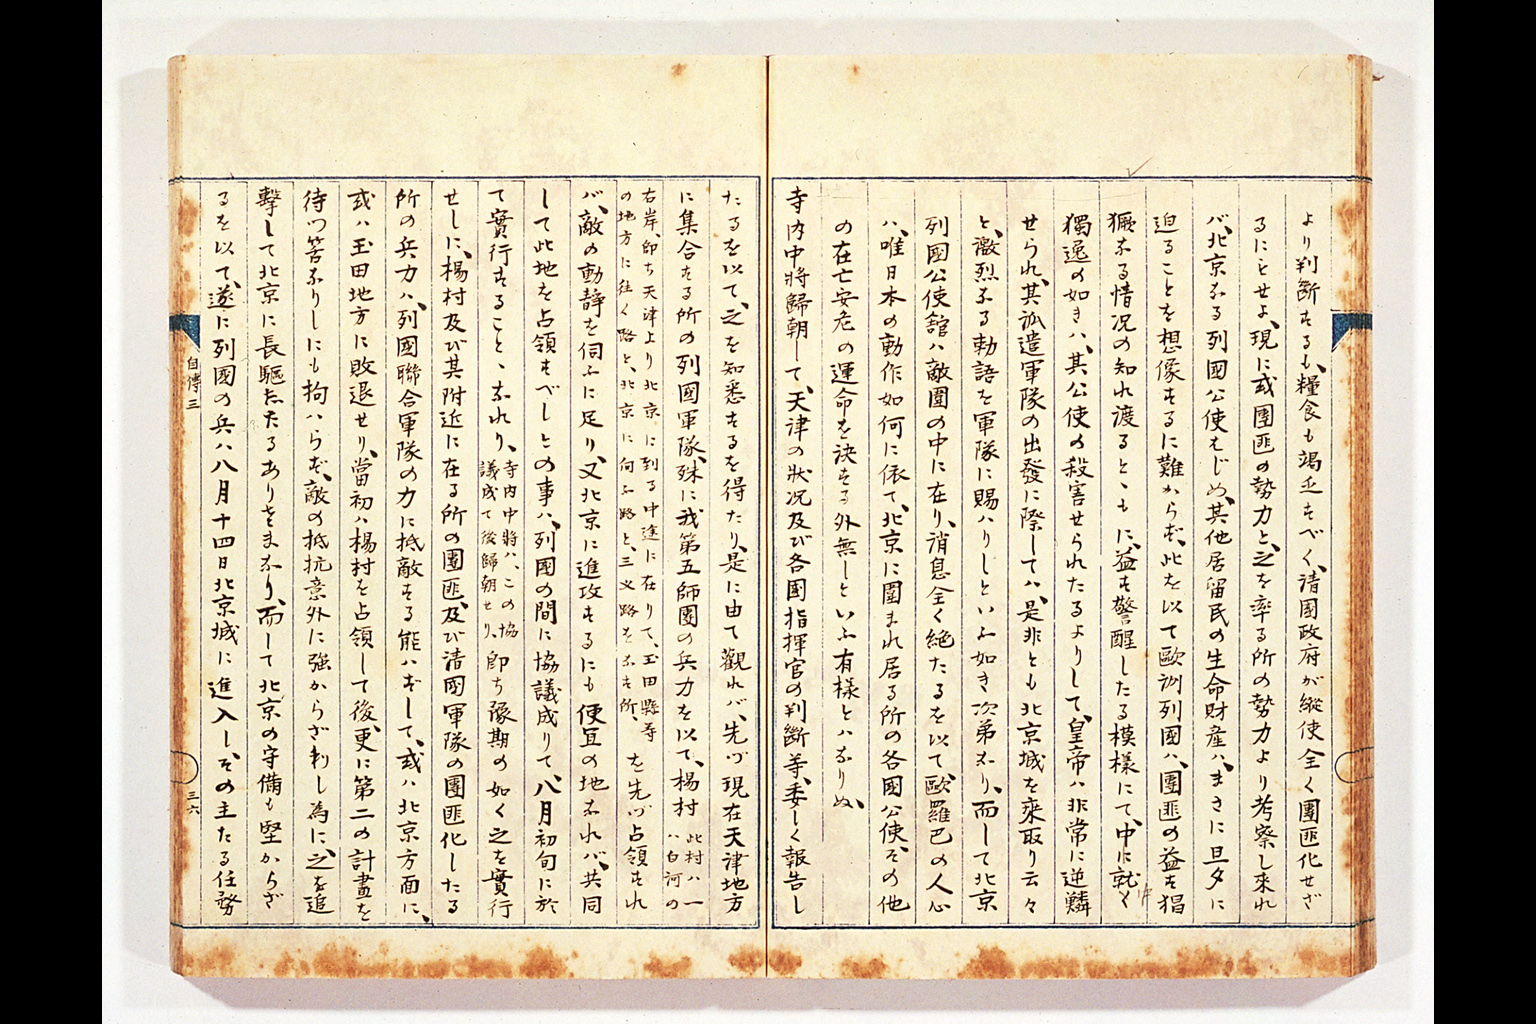 より判断するも、糧食も竭乏すべく、清國政府が縦使全く團匪化せざ
るにもせよ、現に或團匪の勢力と、之を率る所の勢力より考察し来れ
バ、北京なる列國公使はじめ、其他居留民の生命財産ハ、まさに旦夕に
迫ることを想像するに難からず、此を以て歐洲列國ハ、團匪の益す猖
獗なる情况の知れ渡るとゝもに、益す警醒したる模樣にて、中に就く
獨逸の如きハ、其公使の殺害せられたるよりして、皇帝ハ非常に逆鱗
せられ、其派遣軍隊の出發に際してハ、是非とも北京城を乗取り云々
と、激烈なる勅語を軍隊に賜ハりしといふ如き次第なり、而して北京
列國公使舘ハ敵圍の中に在り、消息全く絶たるを以て歐羅巴の人心
ハ、唯日本の動作如何に依て、北京に圍まれ居る所の各國公使その他
の在亡安危の運命を決する外無しといふ有樣とハなりぬ、
寺内中將歸朝して、天津の狀况及び各國指揮官の判斷等、委しく報告し
たるを以て、之を知悉するを得たり、是に由て觀れバ、先づ現在天津地方
に集合する所の列國軍隊、殊に我第五師團の兵力を以て、楊村 此村ハ一ハ白河の
右岸、卽ち天津より北京に到る中途に在りて、玉田縣等の地方に往く路と、北京に向ふ路と、三叉路をなす所、 を先づ占領すれ
バ、敵の動静を伺ふに足り、又北京に進攻するにも便宜の地なれバ、共同
して此地を占領すべしとの事ハ、列國の間に協議成りて、八月初旬に於
て實行すること、なれり、 寺内中將ハ、この協議成て後歸朝せり、 卽ち豫期の如く之を實行
せしに、楊村及び其附近に在る所の團匪及び清國軍隊の團匪化したる
所の兵力ハ、列國聯合軍隊の力に抵敵する能ハずして、或ハ北京方面に、
或ハ玉田地方に敗退せり、當初ハ楊村を占領して後、更に第二の計畫を
待つ筈なりしにも拘ハらず、敵の抵抗意外に強からざりし為に、之を追
擊して北京に長驅したるありさまなり、而して北京の守備も堅からざ
るを以て、遂に列國の兵ハ八月十四日北京城に進入し、その主たる任務
自傳三
三六